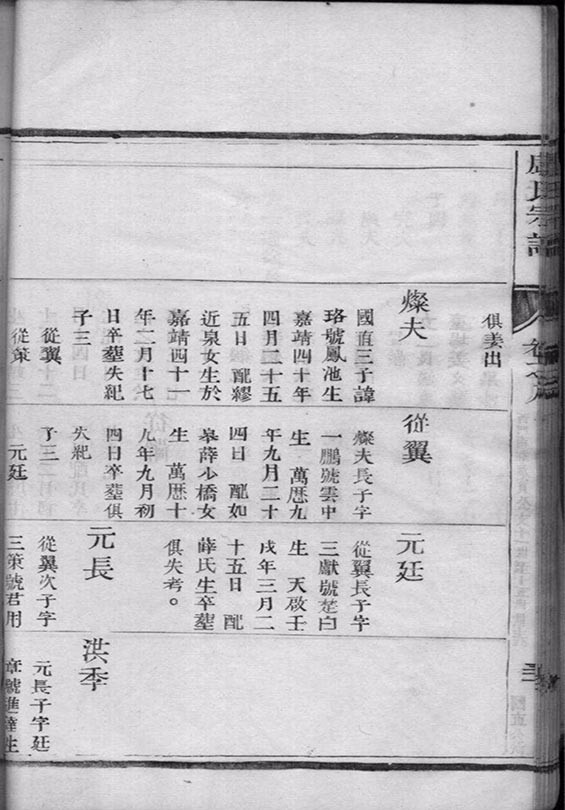 氏宗譜
俱姜出
燦夫
國直三子諱
珞號鳳池生
嘉靖四十年
四月二十五
五日 配繆
近泉女生於
嘉靖四十一
年 月十七
日卒葬失紀
子三
從翼
從策
從翼
燦夫長子字
一鵬號雲中
生 萬曆九
年九月二十
四日 配如
皋薛少橋女
生 萬曆十
九年九月初
四日卒葬俱
失紀
子三
元廷
元廷
從翼長子字
三獻號楚白
生 天啟壬
戌年三月二
十五日 配
薛氏生卒葬
俱失考。
元長
從翼次子字
三策號君用
洪季
元長子字廷
章號進達生